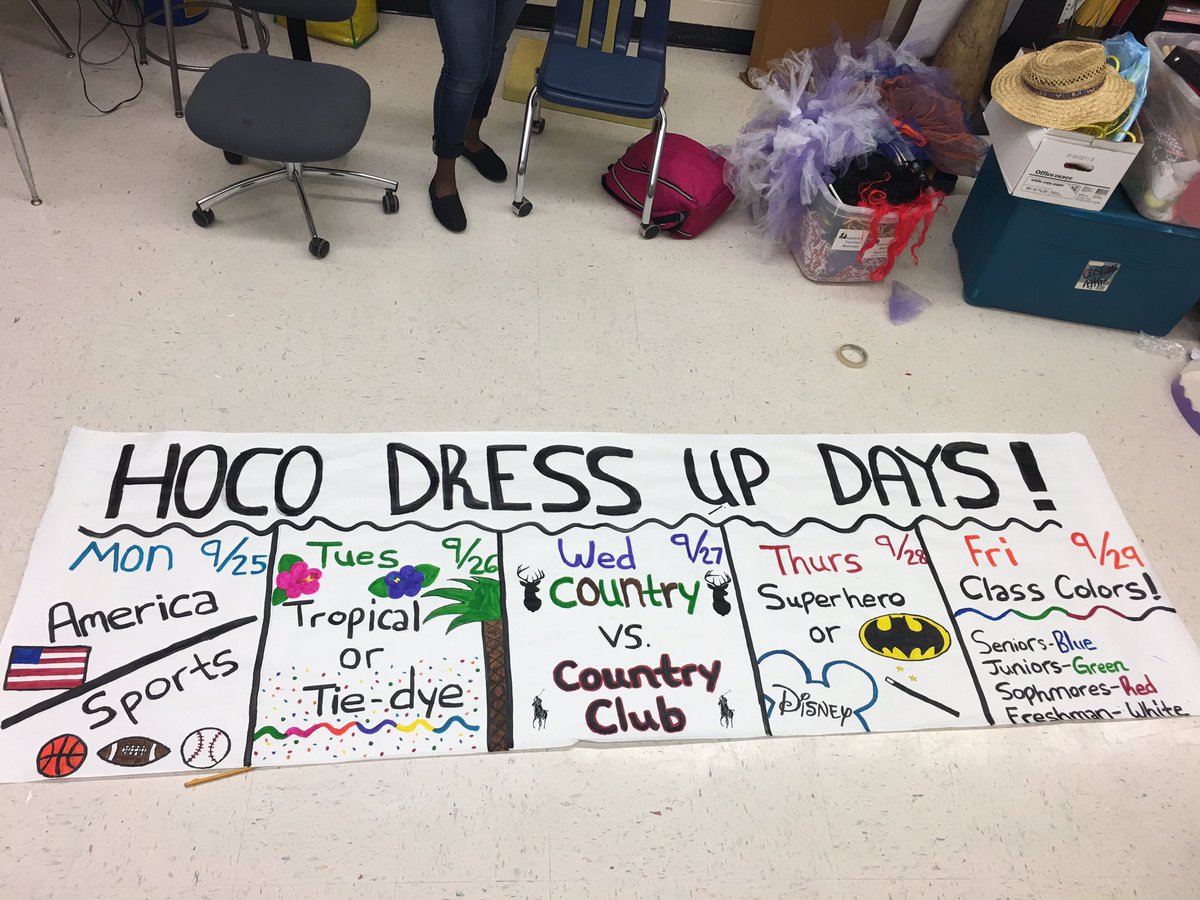 HOCO DRESS UP DAYS!
Mon 9/25
America
Sports
Tues 9/26
Tropical
or
Tie-dye
Wed 9/27
Country
vs.
Country
Club
Thurs 9/28
Superhero
or
Disney
Fri 9/29
Class Colors!
Seniors-Blue
Juniors-Green
Sophmores-Red
Freshman-White
Office DEPOT